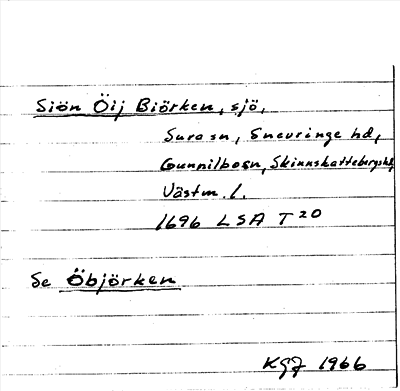 Siön Öij Biörken, sjö,
Sura sn, Snevringe hd,
Gunnilbosn, Skinnskattebergs hd,
Västm. l.
1696 LSA T 20
Se Öbjörken
KGJ 1966